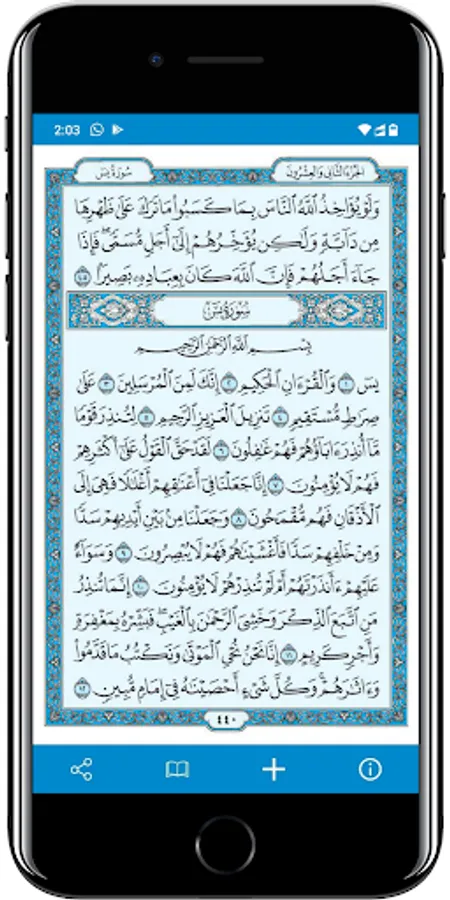 2:03
سُورَةُ يسٓ
الجُزْءُ الثَّانِي وَالعِشْرُونَ
وَلَوْ يُؤَاخِذُ ٱللَّهُ ٱلنَّاسَ بِمَا كَسَبُوا۟ مَا تَرَكَ عَلَىٰ ظَهْرِهَا
مِن دَآبَّةٍ وَلَٰكِن يُؤَخِّرُهُمْ إِلَىٰٓ أَجَلٍ مُّسَمًّى ۖ فَإِذَا
جَآءَ أَجَلُهُمْ فَإِنَّ ٱللَّهَ كَانَ بِعِبَادِهِۦ بَصِيرًۢا ٤٥
سُورَةُ يسٓ
بِسْمِ ٱللَّهِ ٱلرَّحْمَٰنِ ٱلرَّحِيمِ
يسٓ ١ وَٱلْقُرْءَانِ ٱلْحَكِيمِ ٢ إِنَّكَ لَمِنَ ٱلْمُرْسَلِينَ ٣ عَلَىٰ
صِرَٰطٍ مُّسْتَقِيمٍ ٤ تَنزِيلَ ٱلْعَزِيزِ ٱلرَّحِيمِ ٥ لِتُنذِرَ قَوْمًا
مَّآ أُنذِرَ ءَابَآؤُهُمْ فَهُمْ غَٰفِلُونَ ٦ لَقَدْ حَقَّ ٱلْقَوْلُ عَلَىٰٓ أَكْثَرِهِمْ
فَهُمْ لَا يُؤْمِنُونَ ٧ إِنَّا جَعَلْنَا فِىٓ أَعْنَٰقِهِمْ أَغْلَٰلًا فَهِىَ إِلَى
ٱلْأَذْقَانِ فَهُم مُّقْمَحُونَ ٨ وَجَعَلْنَا مِنۢ بَيْنِ أَيْدِيهِمْ سَدًّا
وَمِنْ خَلْفِهِمْ سَدًّا فَأَغْشَيْنَٰهُمْ فَهُمْ لَا يُبْصِرُونَ ٩ وَسَوَآءٌ
عَلَيْهِمْ ءَأَنذَرْتَهُمْ أَمْ لَمْ تُنذِرْهُمْ لَا يُؤْمِنُونَ ١٠ إِنَّمَا تُنذِرُ
مَنِ ٱتَّبَعَ ٱلذِّكْرَ وَخَشِىَ ٱلرَّحْمَٰنَ بِٱلْغَيْبِ ۖ فَبَشِّرْهُ بِمَغْفِرَةٍ
وَأَجْرٍ كَرِيمٍ ١١ إِنَّا نَحْنُ نُحْىِ ٱلْمَوْتَىٰ وَنَكْتُبُ مَا قَدَّمُوا۟
وَءَاثَٰرَهُمْ ۚ وَكُلَّ شَىْءٍ أَحْصَيْنَٰهُ فِىٓ إِمَامٍ مُّبِينٍ ١٢
٤٤٠